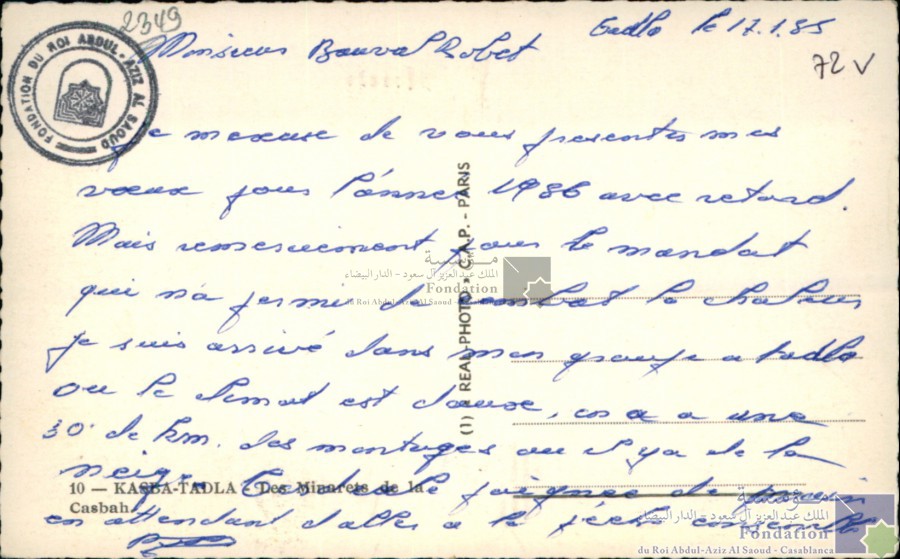 2349
Monsieur Bauval Robet
Tadla le 17.1.85
72 V
FONDATION DU ROI ABDUL-AZIZ AL SAOUD
Je mexcuse de vous presentes mes
vœux pour l'année 1986 avec retard.
Mais remerciement pour le mandat
qui m'a permi de combat la chaleur
je suis arrivé dans mon groupe a tadla
ou le climat est doux, on a a une
30 de km. des montages ou il ya de la
neige. Cordiale poignée de main
en attendant d'aller a la pêche ensemble
(1) « REAL-PHOTO » C.A.P. - PARIS
10 — KASBA-TADLA - Les Minarets de la
Casbah.
مؤسسة
الملك عبد العزيز آل سعود - الدار البيضاء
Fondation
du Roi Abdul-Aziz Al Saoud - Casablanca
مؤسسة
الملك عبد العزيز آل سعود - الدار البيضاء
Fondation
du Roi Abdul-Aziz Al Saoud - Casablanca